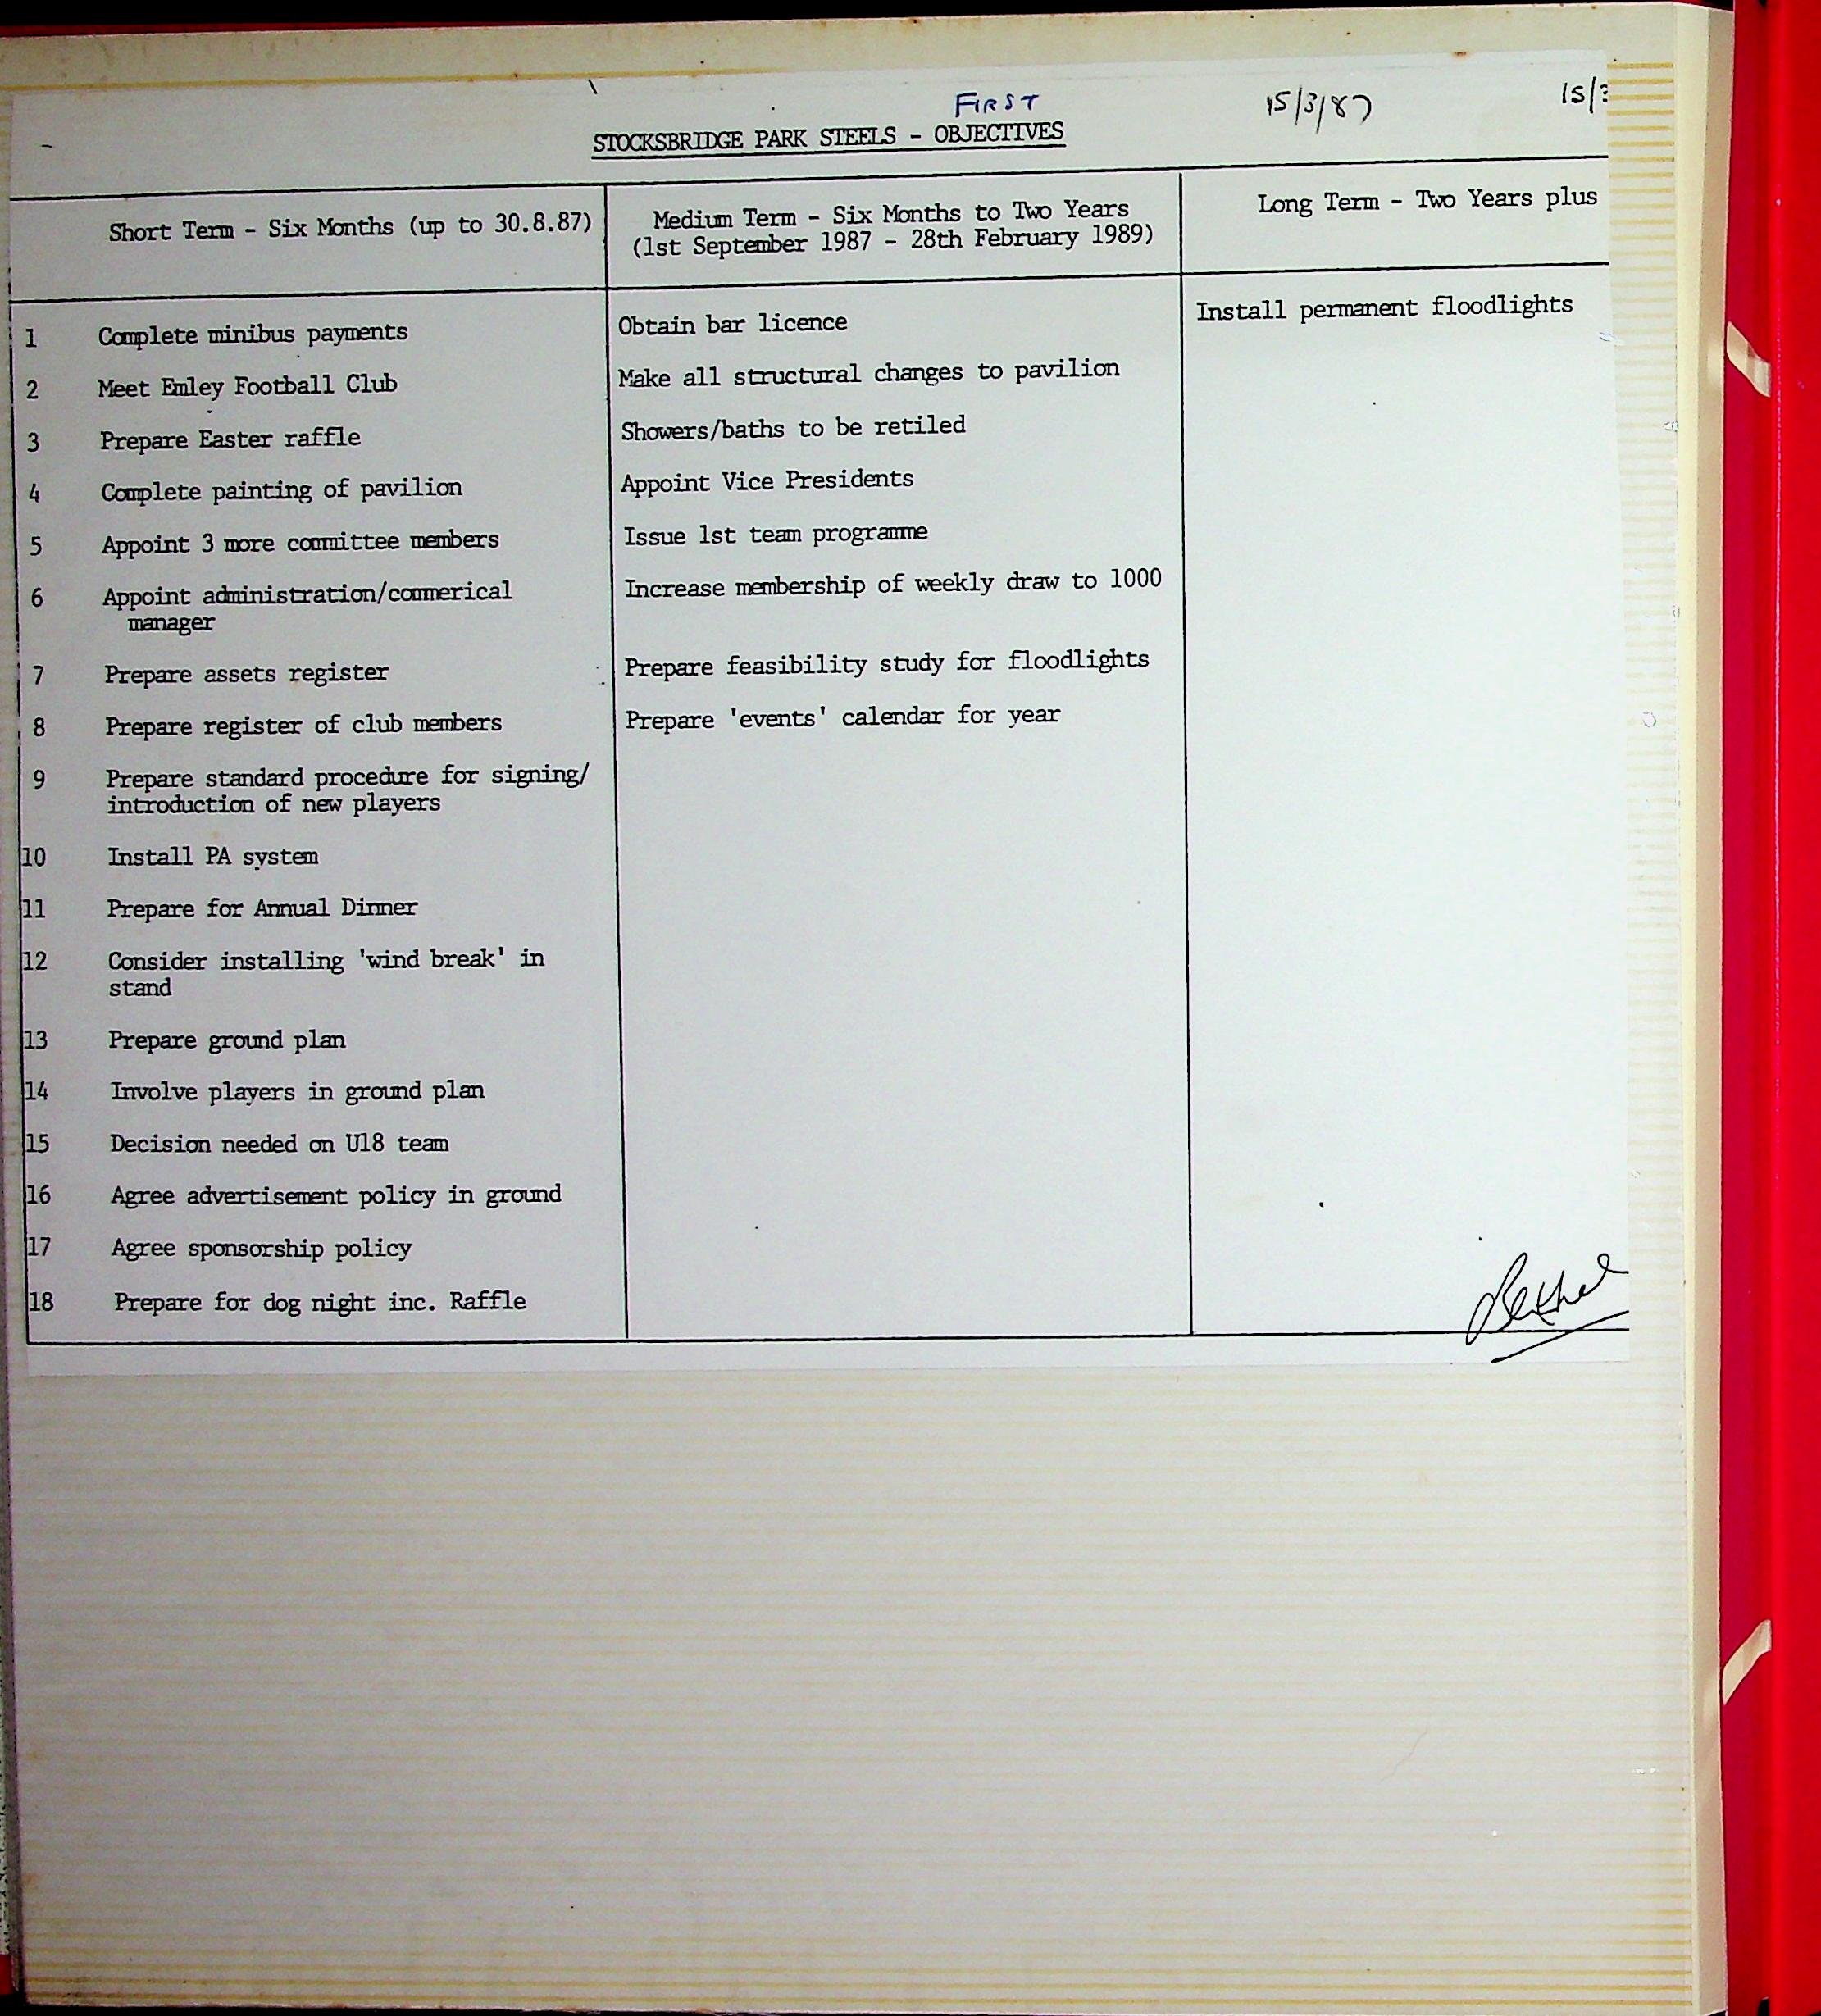 FIRST
15/3/87
15/3
STOCKSBRIDGE PARK STEELS - OBJECTIVES
Short Term - Six Months (up to 30.8.87)
Medium Term - Six Months to Two Years
(1st September 1987 - 28th February 1989)
Long Term - Two Years plus
1 Complete minibus payments
Obtain bar licence
Install permanent floodlights
2 Meet Emley Football Club
Make all structural changes to pavilion
3 Prepare Easter raffle
Showers/baths to be retiled
4 Complete painting of pavilion
Appoint Vice Presidents
5 Appoint 3 more committee members
Issue 1st team programme
6 Appoint administration/commerical
manager
Increase membership of weekly draw to 1000
7 Prepare assets register
Prepare feasibility study for floodlights
8 Prepare register of club members
Prepare 'events' calendar for year
9 Prepare standard procedure for signing/
introduction of new players
10 Install PA system
11 Prepare for Annual Dinner
12 Consider installing 'wind break' in
stand
13 Prepare ground plan
14 Involve players in ground plan
15 Decision needed on U18 team
16 Agree advertisement policy in ground
17 Agree sponsorship policy
18 Prepare for dog night inc. Raffle